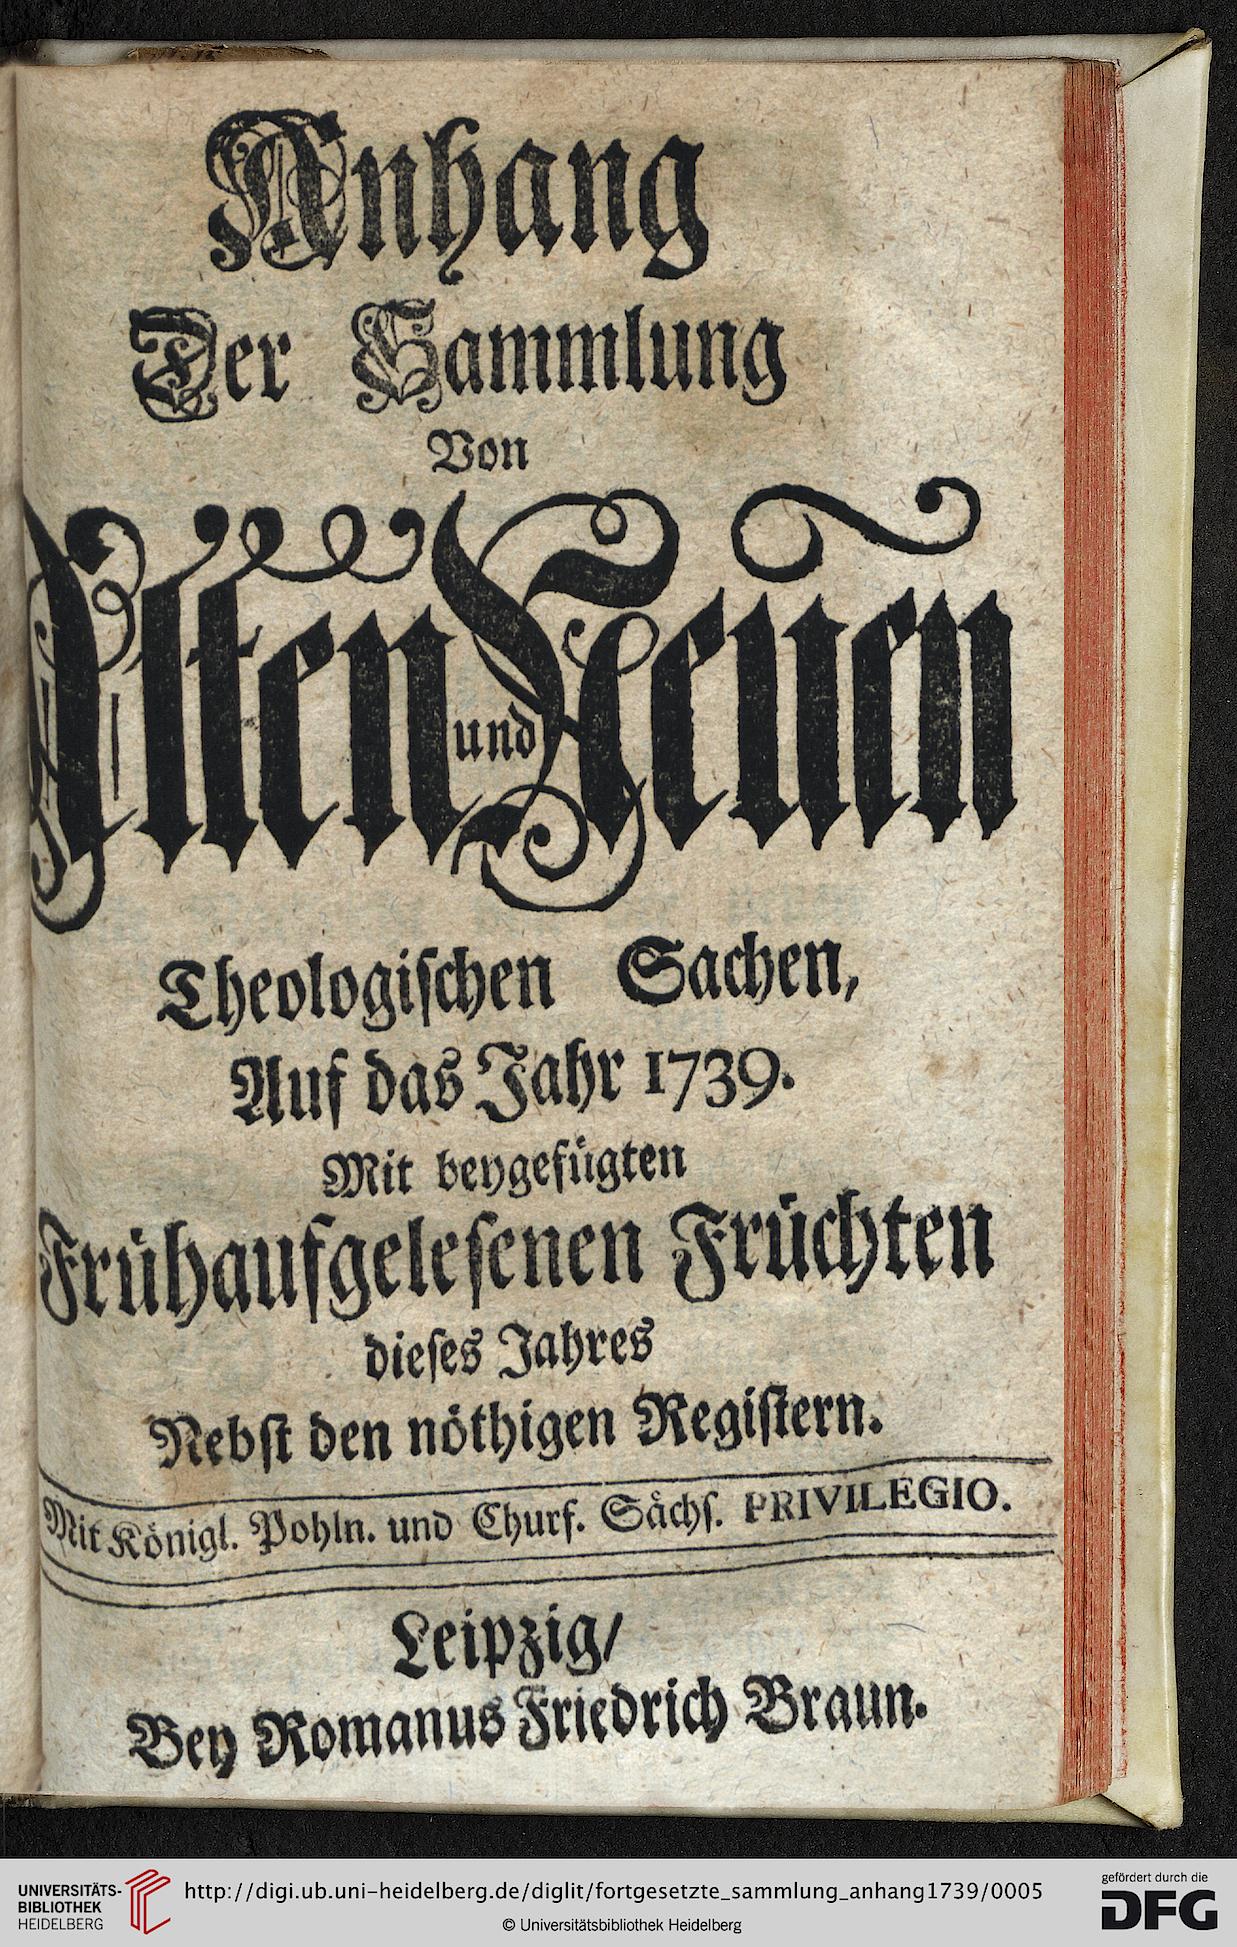 Anhang
Der Sammlung
Von
Alten und Neuen
Theologischen Sachen,
Auf das Jahr 1739.
Mit beygefügten
Frühaufgelesenen Früchten
dieses Jahres
Nebst den nöthigen Registern.
Mit Königl. Pohln. und Churf. Sächs. PRIVILEGIO.
Leipzig/
Bey Romanus Friedrich Braun.
UNIVERSITÄTS-
BIBLIOTHEK
HEIDELBERG
http://digi.ub.uni-heidelberg.de/diglit/fortgesetzte_sammlung_anhang1739/0005
© Universitätsbibliothek Heidelberg
gefördert durch die
DFG